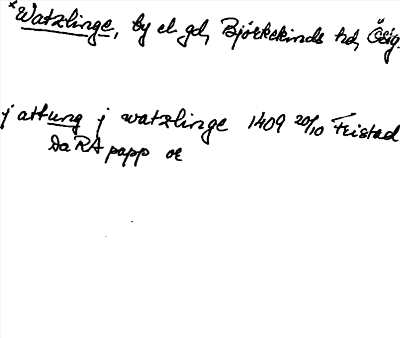 *Watzlinge, by el. gd, Björkekinds hd, Ösig.
j attung j watzlinge 1409 20/10 Feistad
DaRA papp or